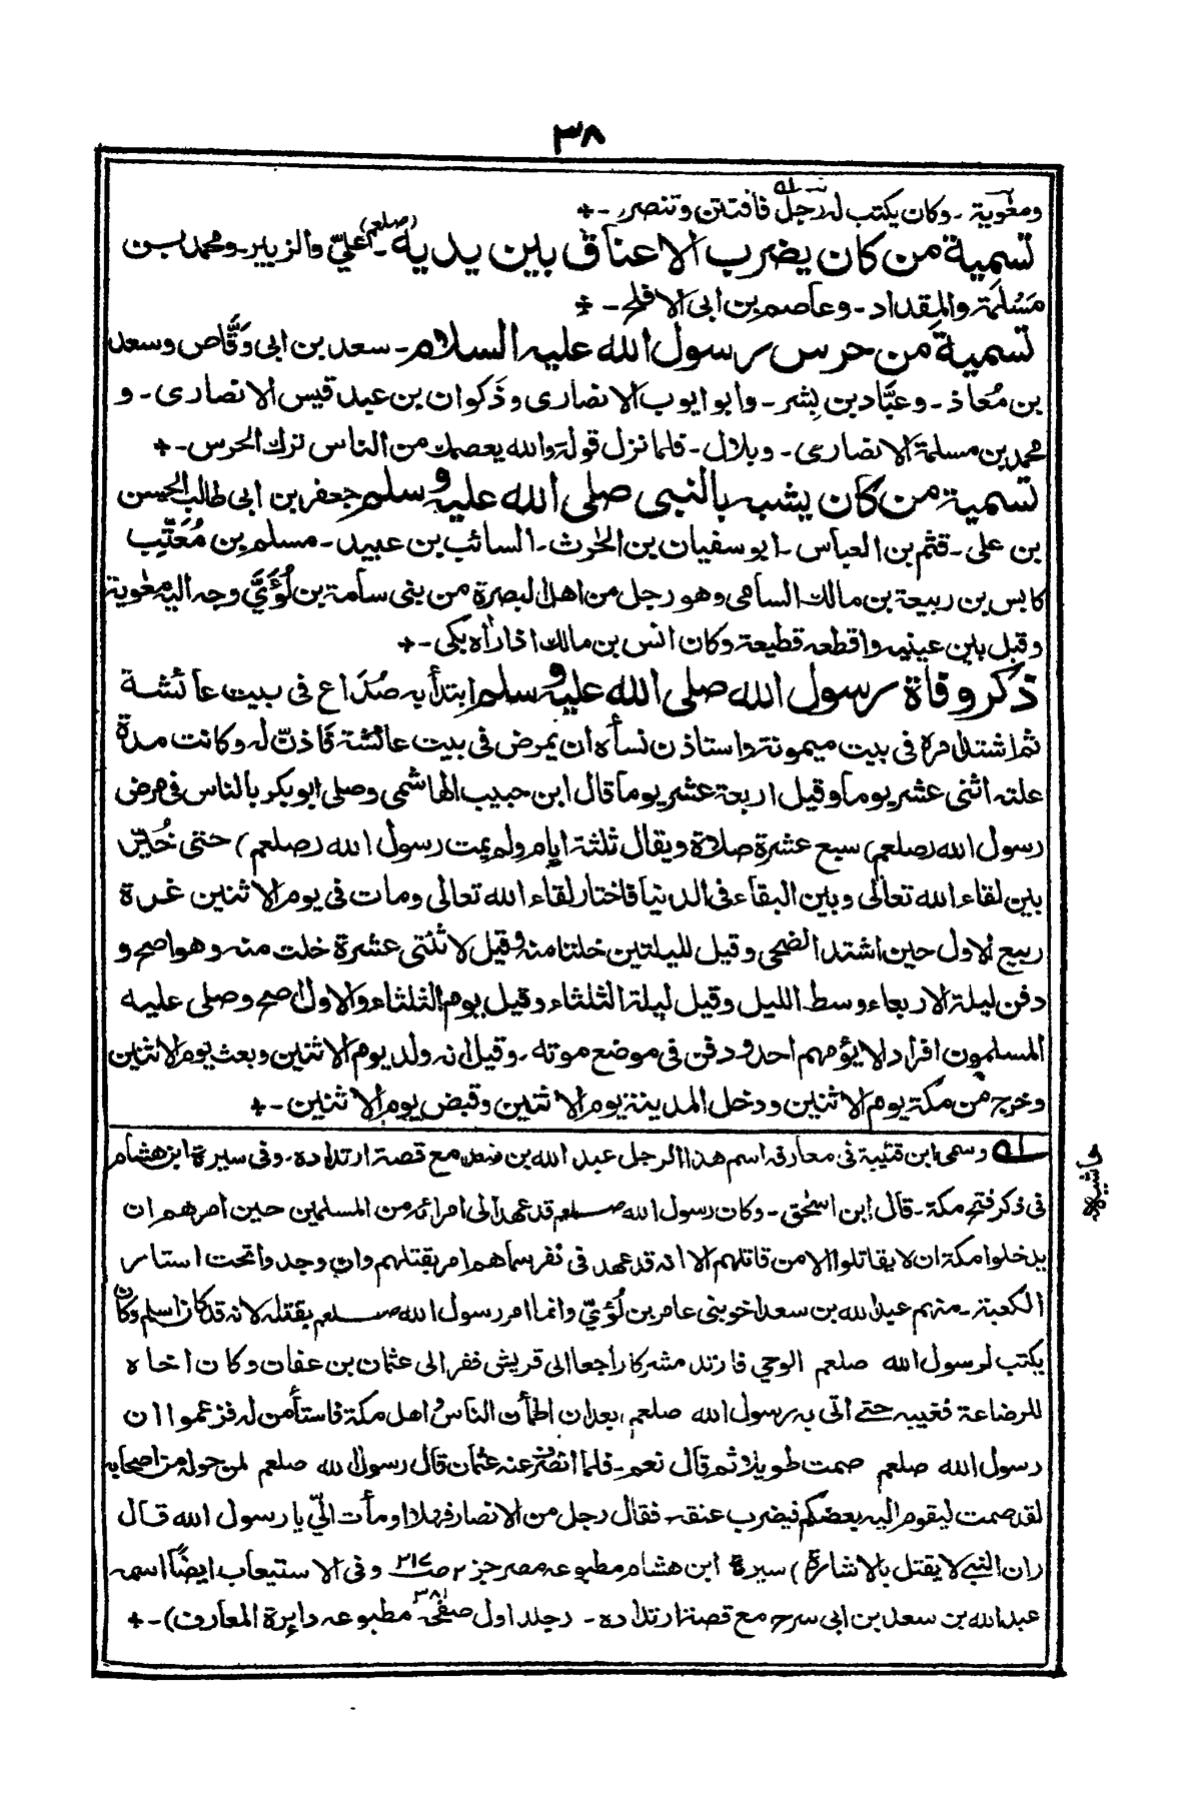 ٣٨
ومعٰوية ـ وكان يكتب له رجل فافتتن وتنصر ـ +
تسمية من كان يضرب الاعناق بين يديه (صلعم) ـ عليّ والزبير ـ ومحمد بن
مَسْلمَة والمِقداد ـ وعاصم بن ابى الافلح ـ +
تسمية من حرس رسول الله عليه السلام ـ سعد بن ابى وَقَّاص وسعد
بن مُعاذ ـ وعبَّاد بن بِشر ـ وابو ايوب الانصارى وذَكوان بن عبد قيس الانصارى ـ و
محمد بن مسلمة الانصارى ـ وبلال ـ فلما نزل قولة والله يعصمك من الناس ترك الحرس ـ +
تسمية من كان يشبه بالنبى صلى الله عليه وسلم جعفر بن ابى طالب الحسن
بن على ـ قثم بن العباس ـ ابو سفيان بن الحٰرث ـ السائب بن عبيد ـ مسلم بن مُعَتِّب
كابس بن ربيعة بن مالك السامى وهو رجل من اهل البصرة من بنى سأمة بن لُؤَيّ وجه اليه معٰوية
وقبل بين عينيه واقطعه قطيعة وكان انس بن مالك اذا رأه بكى ـ +
ذكر وفاة رسول الله صلى الله عليه وسلم ابتدأ به صُدَاع فى بيت عائشة
ثم اشتد امره فى بيت ميمونة واستاذن نسأه ان يمرض فى بيت عائشة فاذنّ له وكانت مدة
علته اثنى عشر يوماً وقيل اربعة عشر يوماً قال ابن حبيب الهاشمى وصلى ابو بكر بالناس فى مرض
رسول الله (صلعم) سبع عشرة صلاة ويقال ثلثة ايام ولم يمت رسول الله (صلعم) حتى خُيّر
بين لقاء الله تعالى وبين البقاء فى الدنيا فاختار لقاء الله تعالى ومات فى يوم الاثنين غرة
ربيع الاول حين اشتد الضحى وقيل لليلتين خلتا منه وقيل لاثنتى عشرة خلت منه وهو اصح و
دفن ليلة الاربعاء وسط الليل وقيل ليلة الثلثاء وقيل يوم الثلثاء والاول اصح وصلى عليه
المسلمون افراد لا يؤمهم احد ودفن فى موضع موته ـ وقيل انه ولد يوم الاثنين وبعث يوم الاثنين
وخرج من مكة يوم الاثنين ودخل المدينة يوم الاثنين وقبض يوم الاثنين ـ +
له وسمى ابن قتيبة فى معارفه اسم هذا الرجل عبد الله بن سعد مع قصة ارتداده ـ وفى سيرة ابن هشام
فى ذكر فتح مكة ـ قال ابن اسحٰق ـ وكان رسول الله صلعم قد عهد الى امرائه من المسلمين حين امرهم ان
يدخلوا مكة ان لا يقاتلوا الا من قاتلهم الا انه قد عهد فى نفر سماهم امر بقتلهم وان وجدوا تحت استار
الكعبة ـ منهم عبد الله بن سعد اخو بنى عامر بن لُؤَيّ وانما امر رسول الله صلعم بقتله لانه قد كان اسلم وكان
يكتب لرسول الله صلعم الوحي فارتد مشركا راجعا الى قريش ففر الى عثمان بن عفان وكان اخاه
للرضاعة فغيبه حتى اتى به رسول الله صلعم بعد ان اطمأن الناس واهل مكة فاستأمن له فزعموا ان
رسول الله صلعم صمت طويلا ثم قال نعم ـ فلما انصرف عنه عثمان قال رسول الله صلعم لمن حوله من اصحابه
لقد صمت ليقوم اليه بعضكم فيضرب عنقه ـ فقال رجل من الانصار فهلا اومأت اليّ يا رسول الله قال
(ان النبى لا يقتل بالاشارة) سيرة ابن هشام مطبوعه مصر جز ٢ ص ٢١٧ وفى الاستيعاب ايضًا اسمه
عبد الله بن سعد بن ابى سرح مع قصة ارتداده ـ (جلد اول صفحه ٣٨١ مطبوعه دايرة المعارف) ـ +
حاشيه